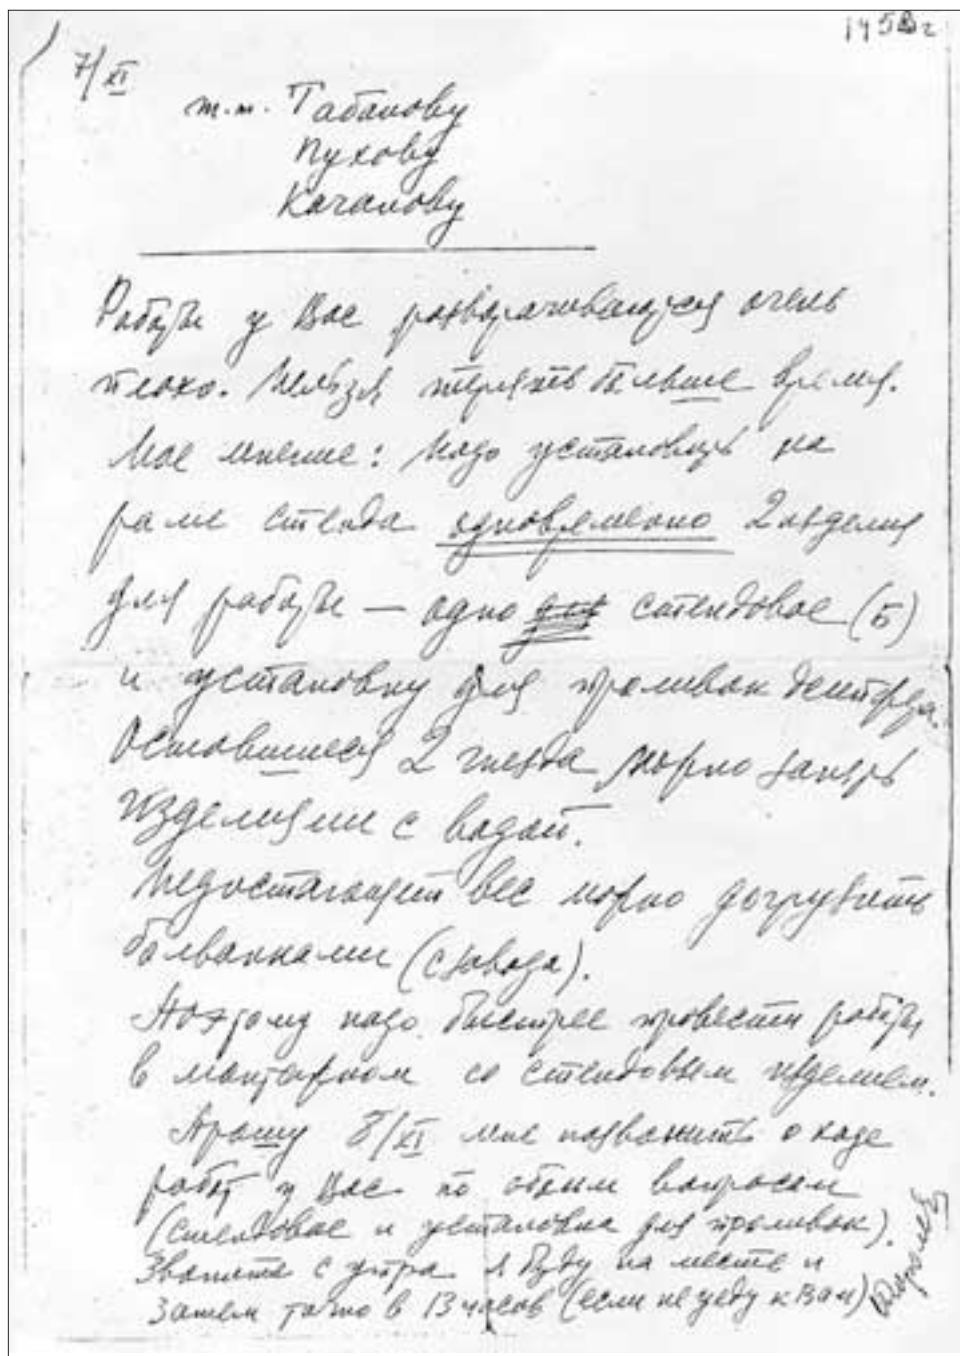 195 г
7/XI
т.т. Табакову
Пухову
Качанову
Работы у Вас разворачиваются очень
плохо. Нельзя терять больше время.
Мое мнение: надо установить на
раме стенда одновремено 2 изделия
для работы — одно стендовое (Б)
и установку для проливок
Оставшиеся 2 гнезда можно занять
изделиями с водой.
Недостающий вес можно догрузить
болванками (с завода).
Поэтому надо быстрее провести работы
в монтажном со стендовым изделием.
Прошу 8/XI мне позвонить о ходе
работ у Вас по обоим вопросам
(стендовое и установка для проливок).
Звоните с утра я буду на месте и
затем точно в 13 часов (если не уеду к Вам)
Королев